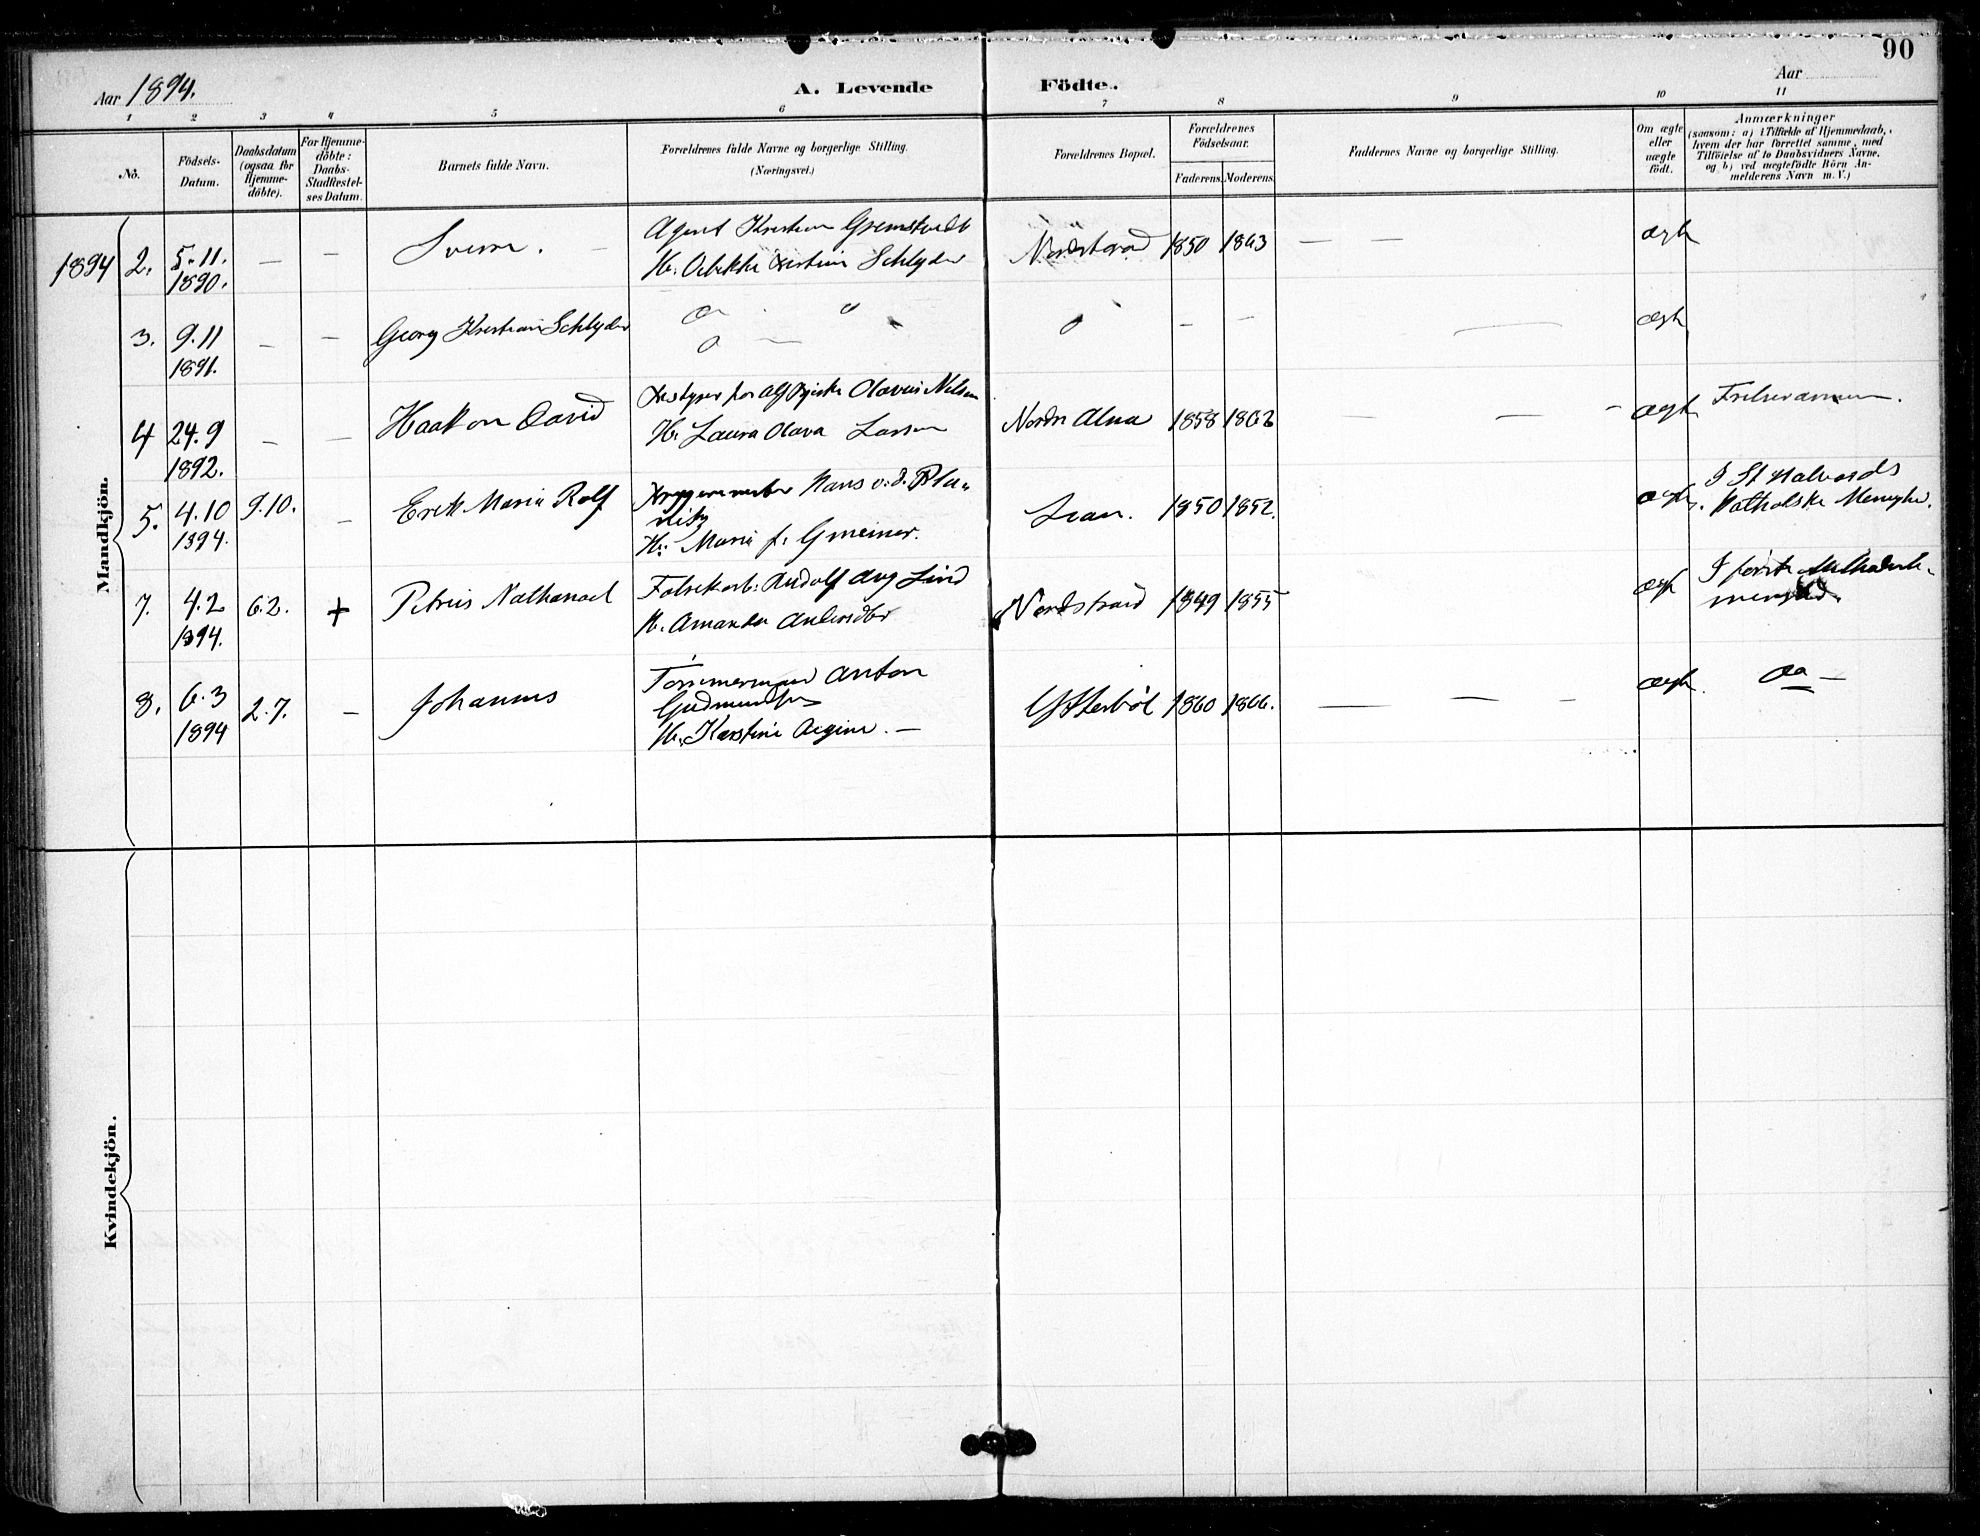 90
Aar 1894.
A. Levende Födte.
Aar
1 2 3 4 5 6 7 8 9 10 11
No.
Födsels-Datum.
Daabsdatum (ogsaa för Hjemme-döbte).
For Hjemme-döbte: Daabs-Stadfæstel-ses Datum.
Barnets fulde Navn.
Forældrenes fulde Navne og borgerlige Stilling.
(Næringsvei.)
Forældrenes Bopæl.
Forældrenes Födselsaar.
Faderens. Moderens.
Faddernes Navne og borgerlige Stilling.
Om ægte eller uægte födt.
Anmærkninger
(saasom: a) i Tilfælde af Hjemmedaab,
hvem der har forrettet samme, med
Tilföielse af to Daabsvidners Navne.
og b) ved uægtefödte Börn An-
melderens Navn m. V.)
Mandkjön.
1894 2. 5.11. 1890. — — Sverre. Agent Kristian Gremstvedt
H. Kristine Schlyder Nordstrand 1850 1863 — — ægte
3. 9.11 1891. — — Georg Kristian Schlyder — — ægte
4 24.9 1892. — — Haakon David Olavus Nilsen
H. Laura Olava Larsen Nordre Alna 1858 1862 — — — ægte
5. 4.10 1894. 9.10. — Erik Maria Rolf Bryggerimester Hans v. d.
H. Maria f. Gmeiner. Lian. 1850 1852. ægte. I St Halvards
Katholske Menighe.
7. 4.2 1894. 6.2. + Petrus Nathanael Fabrikarb. Rudolf Aug Lind
H. Amanda Andersdtr Nordstrand 1849 1855 ægte I første
8. 6.3 1894 2.7. — Johannes Tømmermand Anton
Gudmundsen
H. Karstine Regine. — Østerbøl 1860 1866. — — — ægte. do —
Kvindekjön.